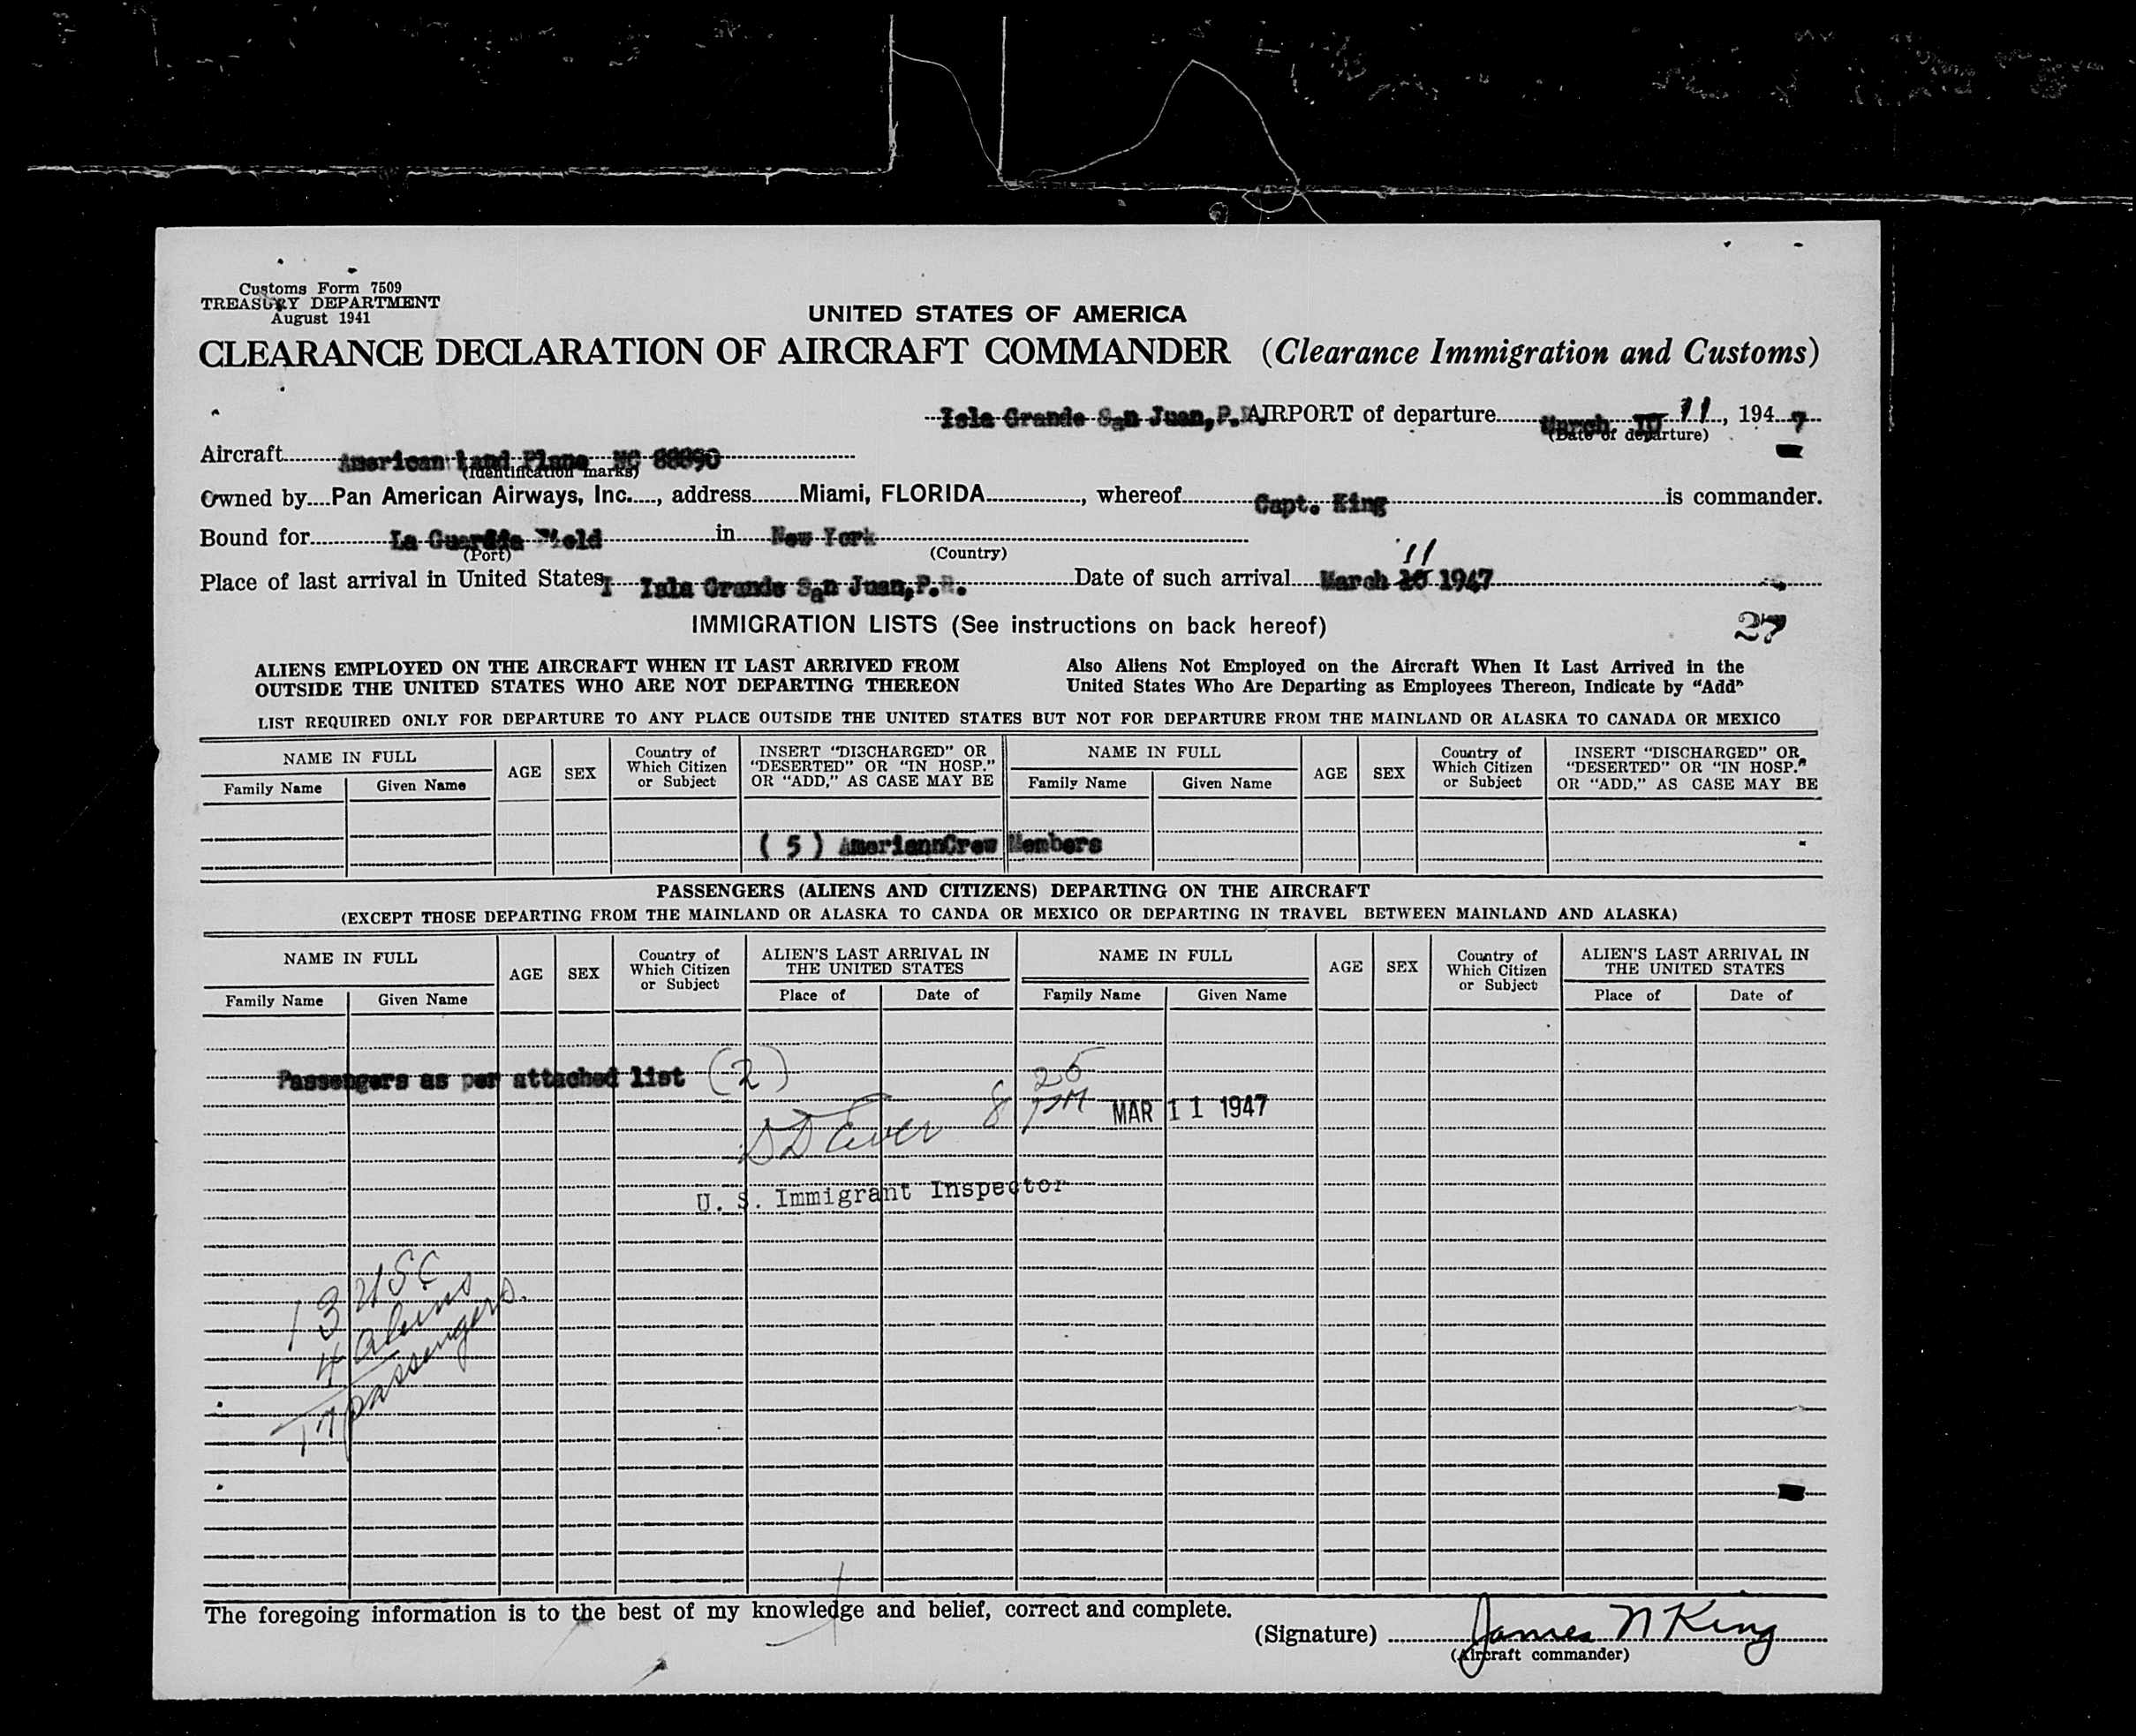 Customs Form 7509
TREASURY DEPARTMENT
August 1941
UNITED STATES OF AMERICA
CLEARANCE DECLARATION OF AIRCRAFT COMMANDER (Clearance Immigration and Customs)
Isla Grande San Juan, P.R. AIRPORT of departure March 10 11, 1947
(Date of departure)
Aircraft American Land Plane NC 88890
(Identification marks)
Owned by Pan American Airways, Inc., address Miami, FLORIDA, whereof Capt. King is commander.
Bound for La Guardia Field in New York
(Port) (Country)
11
Place of last arrival in United States, Isla Grande San Juan, P.R. Date of such arrival March 10 1947
IMMIGRATION LISTS (See instructions on back hereof)
27
ALIENS EMPLOYED ON THE AIRCRAFT WHEN IT LAST ARRIVED FROM
OUTSIDE THE UNITED STATES WHO ARE NOT DEPARTING THEREON
Also Aliens Not Employed on the Aircraft When It Last Arrived in the
United States Who Are Departing as Employees Thereon, Indicate by "Add"
LIST REQUIRED ONLY FOR DEPARTURE TO ANY PLACE OUTSIDE THE UNITED STATES BUT NOT FOR DEPARTURE FROM THE MAINLAND OR ALASKA TO CANADA OR MEXICO
NAME IN FULL
Family Name Given Name
AGE
SEX
Country of
Which Citizen
or Subject
INSERT "DISCHARGED" OR
"DESERTED" OR "IN HOSP."
OR "ADD," AS CASE MAY BE
NAME IN FULL
Family Name Given Name
AGE
SEX
Country of
Which Citizen
or Subject
INSERT "DISCHARGED" OR
"DESERTED" OR "IN HOSP."
OR "ADD," AS CASE MAY BE
( 5 ) AmeriannCrew Members
PASSENGERS (ALIENS AND CITIZENS) DEPARTING ON THE AIRCRAFT
(EXCEPT THOSE DEPARTING FROM THE MAINLAND OR ALASKA TO CANDA OR MEXICO OR DEPARTING IN TRAVEL BETWEEN MAINLAND AND ALASKA)
NAME IN FULL
Family Name Given Name
AGE
SEX
Country of
Which Citizen
or Subject
ALIEN'S LAST ARRIVAL IN
THE UNITED STATES
Place of Date of
NAME IN FULL
Family Name Given Name
AGE
SEX
Country of
Which Citizen
or Subject
ALIEN'S LAST ARRIVAL IN
THE UNITED STATES
Place of Date of
Passengers as per attached list (2)
8 25 PM MAR 11 1947
U. S. Immigrant Inspector
13 USC
4 aliens
17 passengers.
The foregoing information is to the best of my knowledge and belief, correct and complete.
(Signature) James N King
(Aircraft commander)